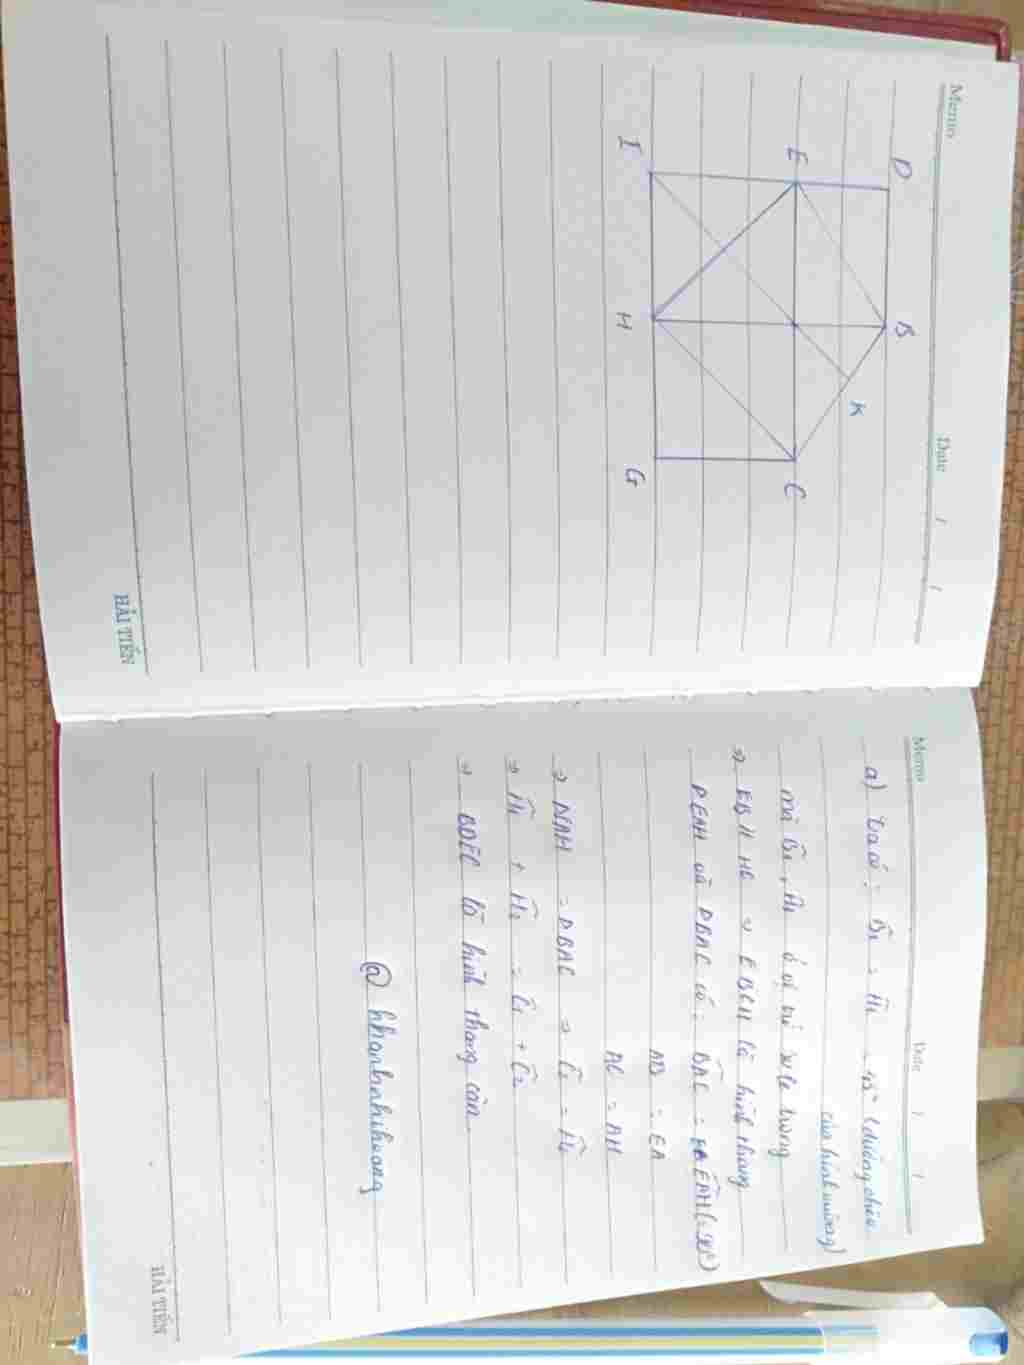 Memo
Date / /
D
B
E
K
C
I
H
G
HẢI TIẾN
Memo
Date / /
a) Ta có: B̂₁ = Ĥ₁ = 45° (đường chéo
của hình vuông)
mà B̂₁, Ĥ₁ ở vị trí so le trong
⇒ EB // HC ⇒ EBCH là hình thang
ΔEAH và ΔBAC có: B̂AC = ÊAH (= 90°)
AB = EA
AC = AH
⇒ = ΔBAC ⇒
⇒ Ĥ₁ + Ĥ₂ = Ĉ₁ + Ĉ₂
⇒ là hình thang cân
@
HẢI TIẾN